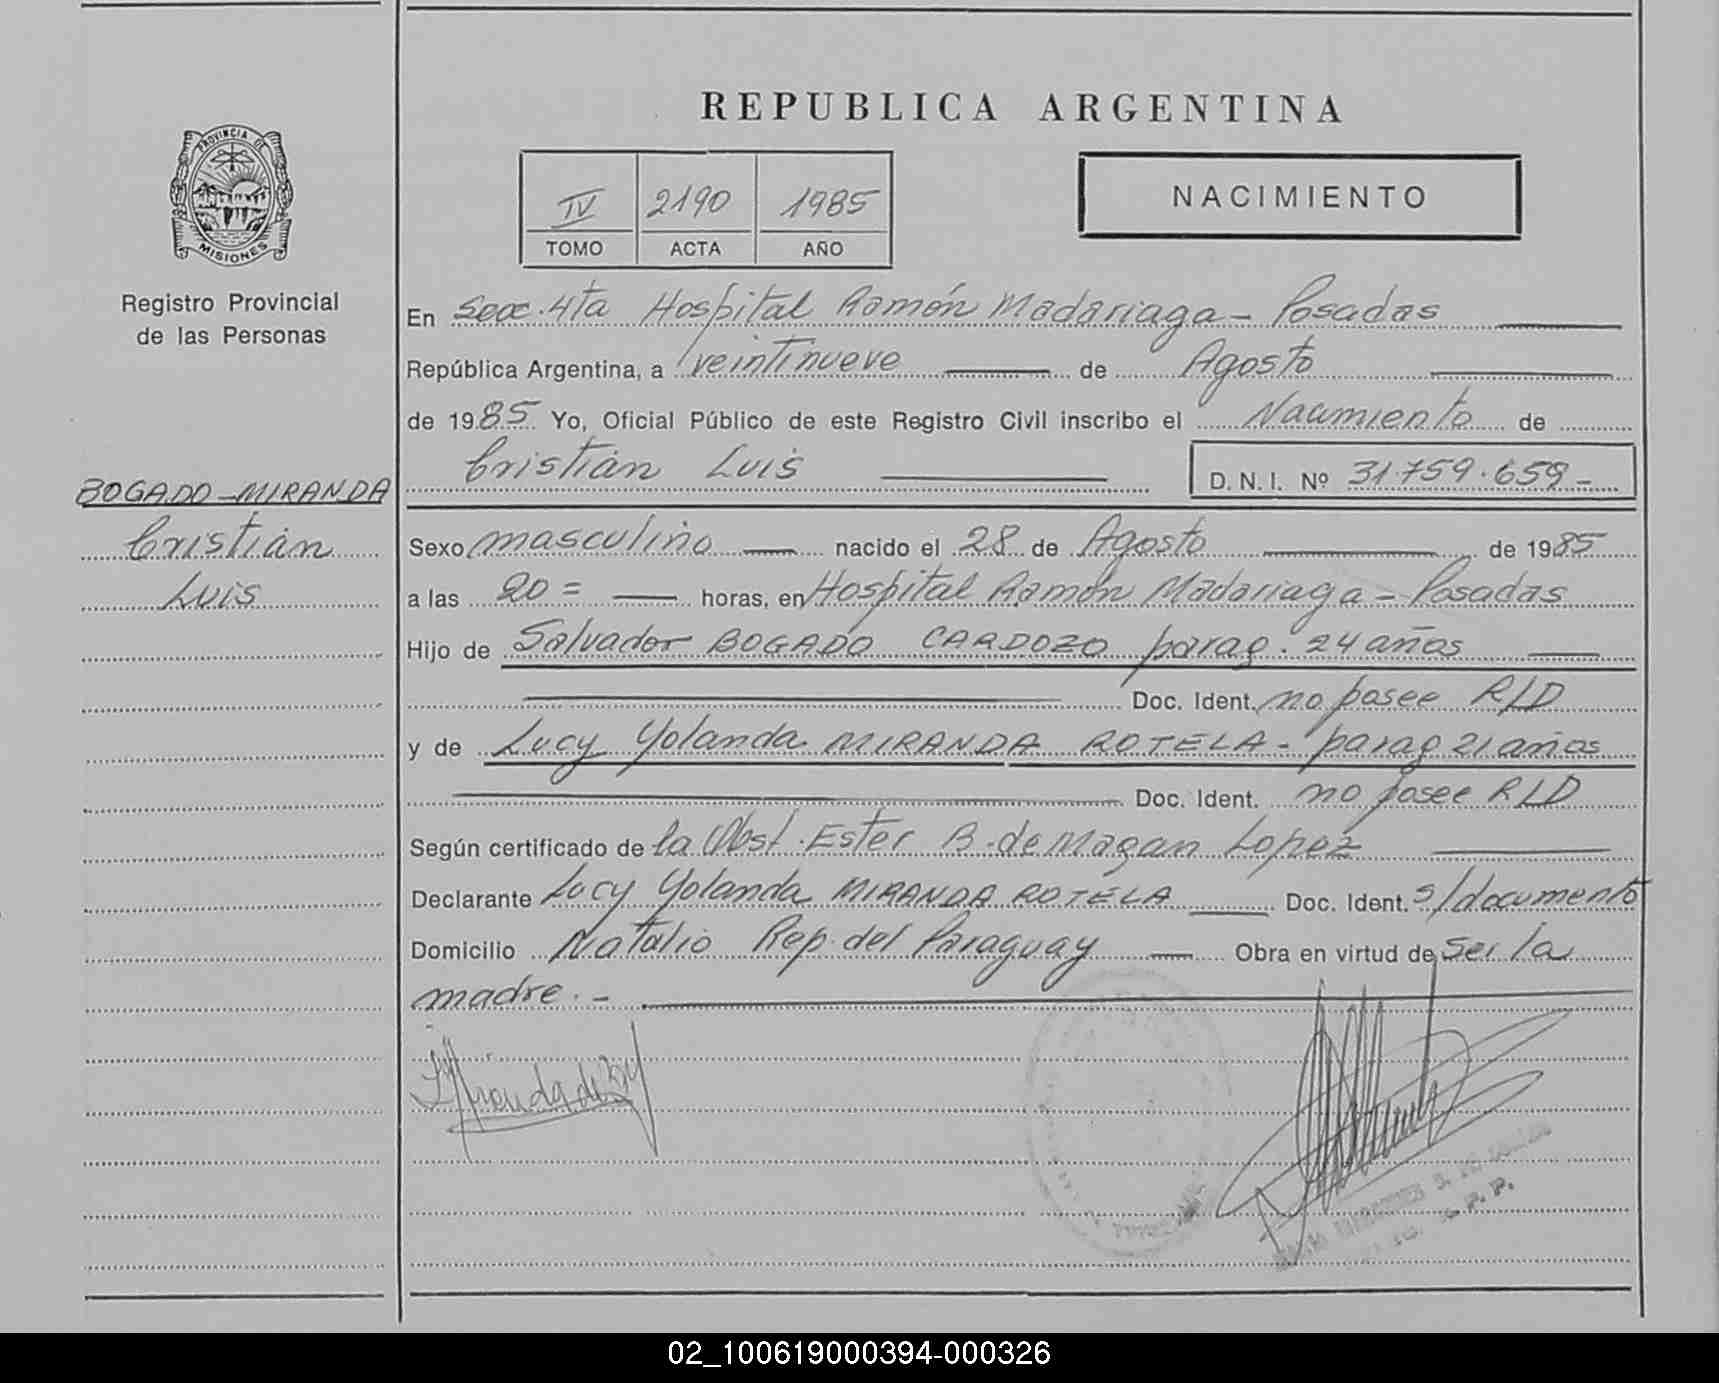 REPUBLICA ARGENTINA
PROVINCIA DE
MISIONES
Registro Provincial
de las Personas
IV 2190 1985
TOMO ACTA AÑO
NACIMIENTO
En Secc. 4ta Hospital Ramón Madariaga - Posadas
República Argentina, a veintinueve de Agosto
de 1985 Yo, Oficial Público de este Registro Civil inscribo el Nacimiento de
Cristián Luis D. N. I. Nº 31.759.659-
BOGADO-MIRANDA
Cristián
Luis
Sexo masculino nacido el 28 de Agosto de 1985
a las 20= horas, en Hospital Ramón Madariaga - Posadas
Hijo de Salvador BOGADO CARDOZO parag. 24 años
Doc. Ident. no posee R/D
y de Lucy Yolanda MIRANDA ROTELA - parag 21 años
Doc. Ident. no posee R/D
Según certificado de la Obst. Ester B. de Magan Lopez
Declarante Lucy Yolanda MIRANDA ROTELA Doc. Ident. s/documento
Domicilio Natalio Rep. del Paraguay Obra en virtud de ser la
madre.-
02_100619000394-000326